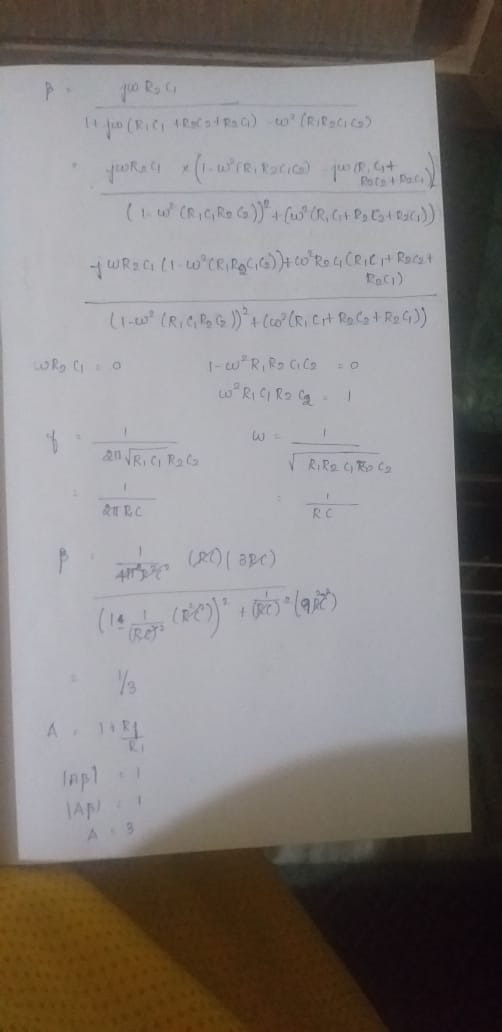 β = jωR₂C₁ / 1+jω(R₁C₁+R₂C₂+R₂C₁) -ω²(R₁R₂C₁C₂)
= jωR₂C₁ × (1-ω²(R₁R₂C₁C₂) - jω(R₁C₁+R₂C₂+R₂C₁)) / (1-ω²(R₁C₁R₂C₂))²+(ω²(R₁C₁+R₂C₂+R₂C₁))
jωR₂C₁(1-ω²(R₁R₂C₁C₂))+ω²R₂C₁(R₁C₁+R₂C₂+R₂C₁) / (1-ω²(R₁C₁R₂C₂))²+(ω²(R₁C₁+R₂C₂+R₂C₁))
ωR₂C₁ = 0 1-ω²R₁R₂C₁C₂ = 0
ω²R₁C₁R₂C₂ = 1
f = 1 / 2π√R₁C₁R₂C₂ ω = 1 / √
= 1 / 2πRC = 1 / RC
β = (RC)(3RC) / (1- 1/(RC)² (R²C²))² + (1/RC)² (9R²C²)
= 1/3
A = 1+Rf/R₁
|Aβ| = 1
|Aβ| = 1
A = 3